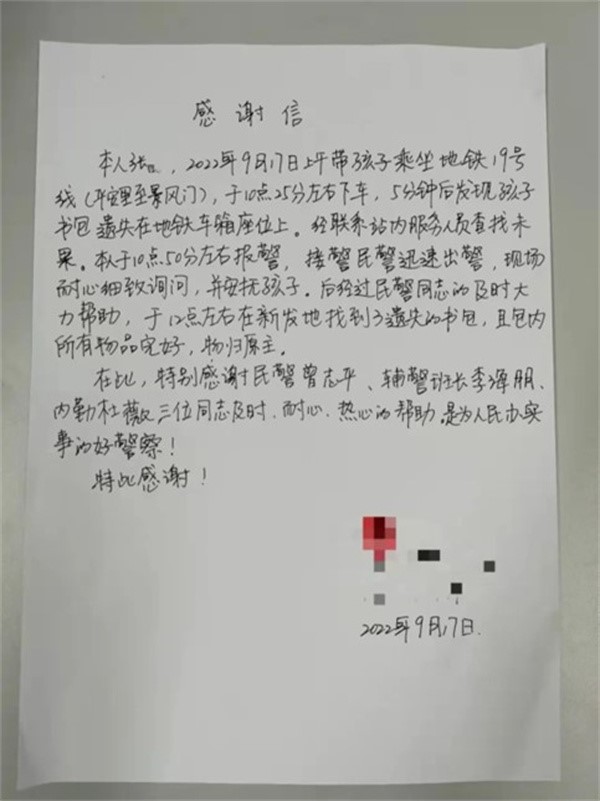 感谢信
本人张，2022年9月17日上午带孩子乘坐地铁19号
线（平安里至景风门），于10点25分左右下车，5分钟后发现孩子
书包遗失在地铁车箱座位上。经联系站内服务人员查找未
果。本人于10点50分左右报警，接警民警迅速出警，现场
耐心细致询问，并安抚孩子。后经过民警同志的及时大
力帮助，于12点左右在新发地找到了遗失的书包，且包内
所有物品完好，物归原主。
在此，特别感谢民警曾志平、辅警班长李泽朋、
内勤杜薇三位同志及时、耐心、热心的帮助，是为人民办实
事的好警察！
特此感谢！
2022年9月17日.